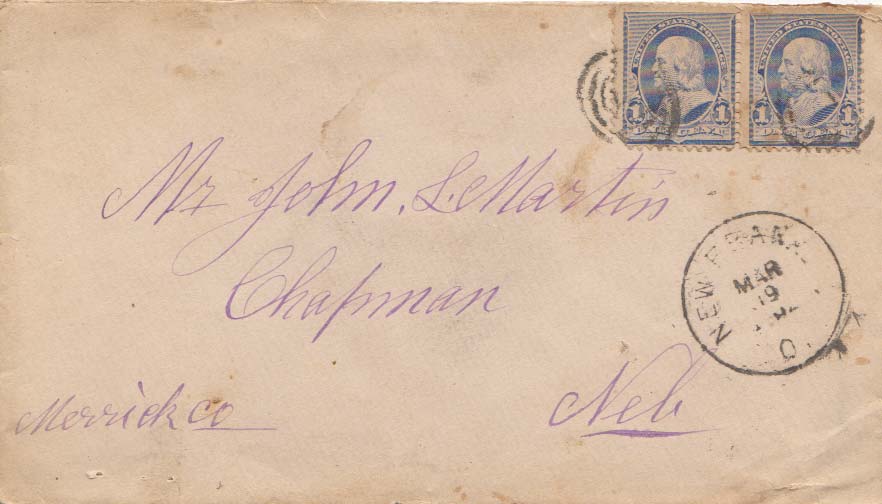 UNITED STATES POSTAGE
1 1
ONE CENT
UNITED STATES POSTAGE
1 1
ONE CENT
Mr John. S. Martin
Chapman
Merrick co
Neb
NEW
MAR
19
O.